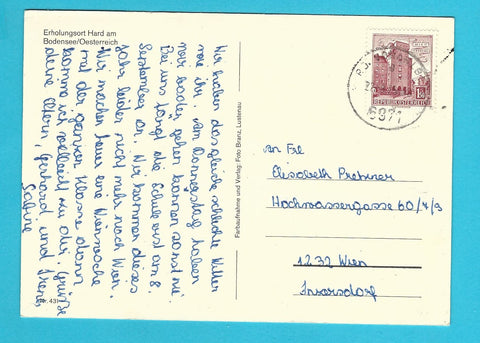 Erholungsort Hard am
Bodensee/Oesterreich
Wir haben das gleiche schlechte Wetter
wie ihr. Am Donnerstag haben
wir baden gehen können sonst nie.
Bei uns fängt die Schule erst am 8.
September an. Wir kommen dieses
Jahr leider nicht mehr nach Wien.
Wir machen heuer eine Wienwoche
mit der ganzen Klasse dann
komme ich vielleicht zu dir. Grüße
deine Eltern, Gerhard, und Irene
Sabine
Farbaufnahme und Verlag: Foto Branz, Lustenau
REPUBLIK ÖSTERREICH
6971
An Frl.
Elisabeth
Hochwassergasse 60/4/9
1232 Wien
Inzersdorf